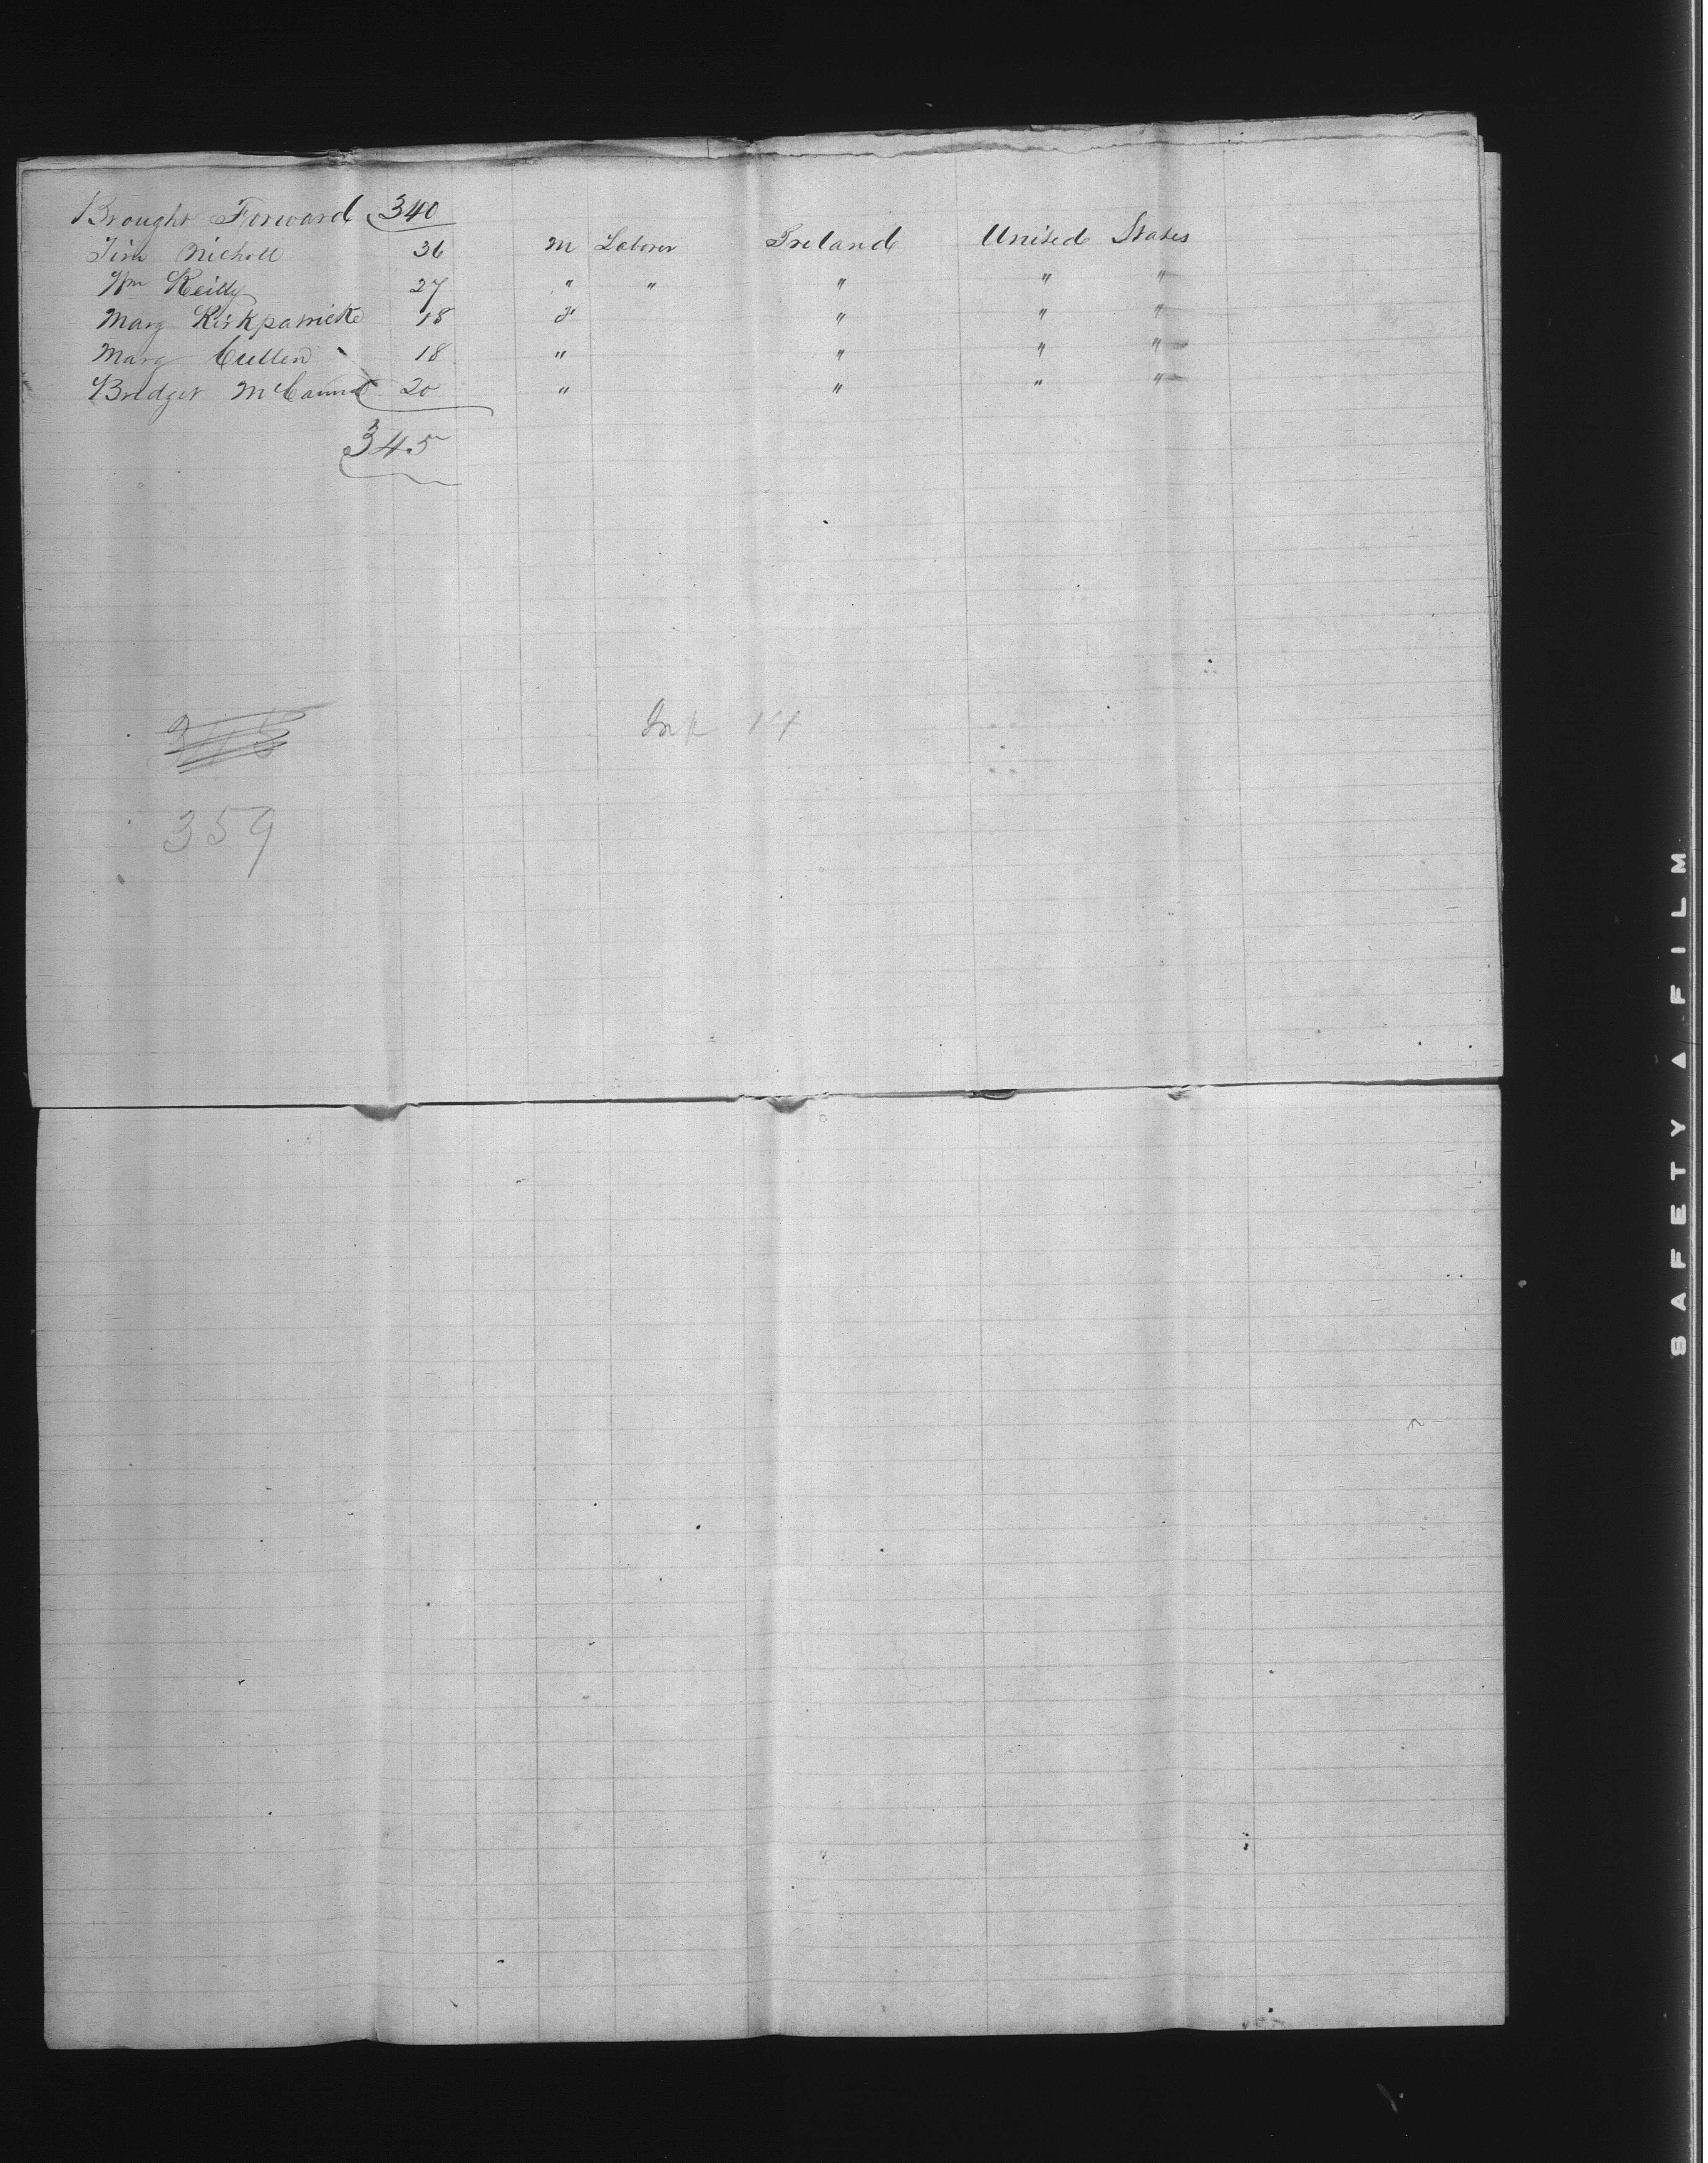 Brought Forward 340
Tim Nicholl 36 M Laborer Ireland United States
Wm Reilly 27 " " " " "
Mary Kirkpatrick 18 F " " "
Mary Cullen 18 " " " "
Bridget McCann 20 " " " "
345
Inf 14
359
SAFETY FILM